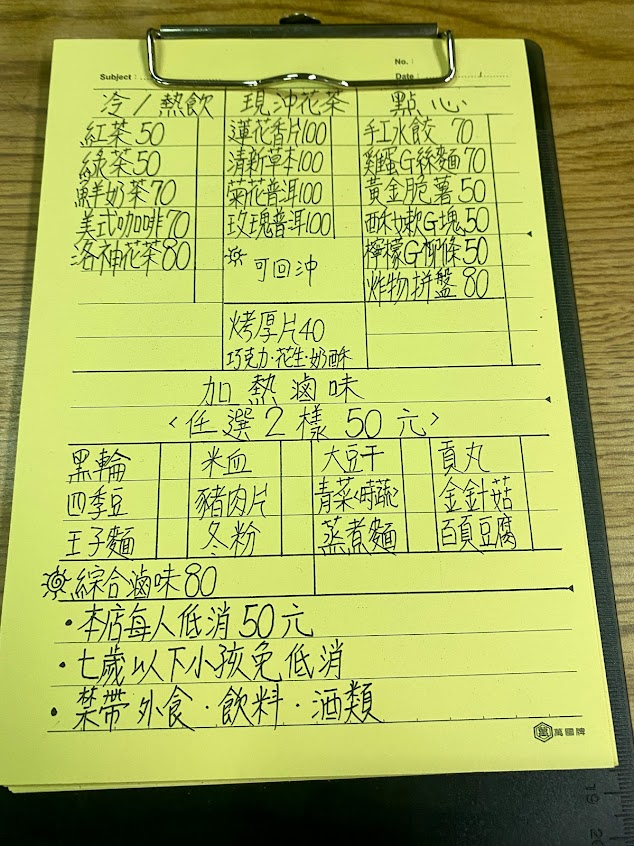 No.:
Subject:
Date:
冷/熱飲 現沖花茶 點心
紅茶50 蓮花香片100 手工水餃 70
綠茶50 清新草本100 雞蛋G絲麵70
鮮奶茶70 菊花普洱100 黃金脆薯50
美式咖啡70 玫瑰普洱100 酥嫩G塊50
洛神花茶80 可回沖 檸檬G柳條50
炸物拼盤 80
烤厚片40
巧克力·花生·奶酥
加熱滷味
<任選2樣50元>
黑輪 米血 大豆干 貢丸
四季豆 豬肉片 青菜<時蔬> 金針菇
王子麵 冬粉 蒸煮麵 百頁豆腐
綜合滷味80
·本店每人低消50元
·七歲以下小孩免低消
·禁帶外食·飲料·酒類
萬國牌
19